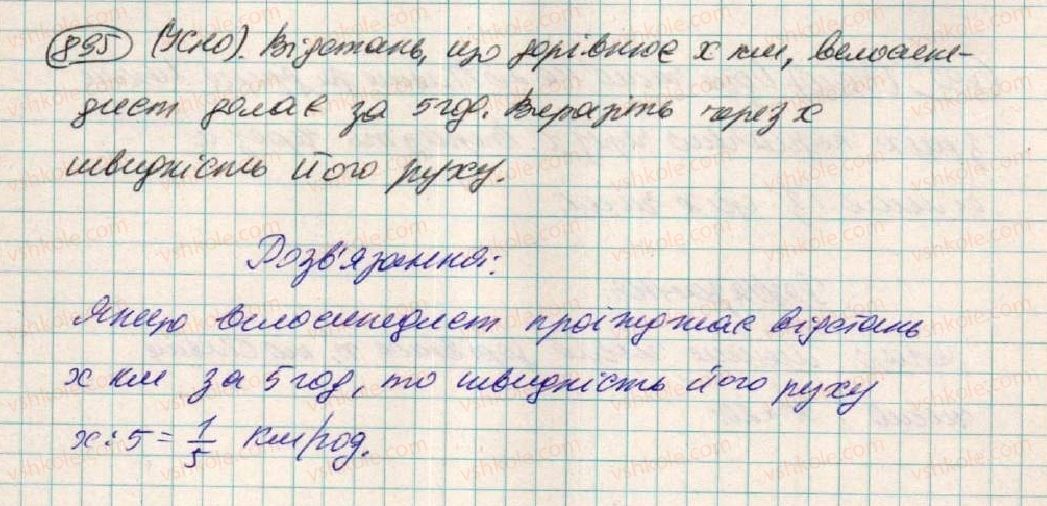 895 (Усно). Відстань, що дорівнює x км, велосипе-
дист долає за 5 год. Виразіть через x
швидкість його руху.
Розв'язання:
Якщо велосипедист проїжджає відстань
x км за 5 год, то швидкість його руху
x : 5 = 1/5 км/год.